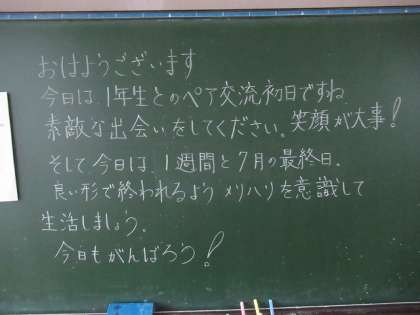 おはようございます
今日は、1年生とのペア交流初日ですね
素敵な出会いをしてください。笑顔が大事!
そして今日は、1週間と7月の最終日。
良い形で終われるよう メリハリを意識して
生活しましょう。
今日もがんばろう!